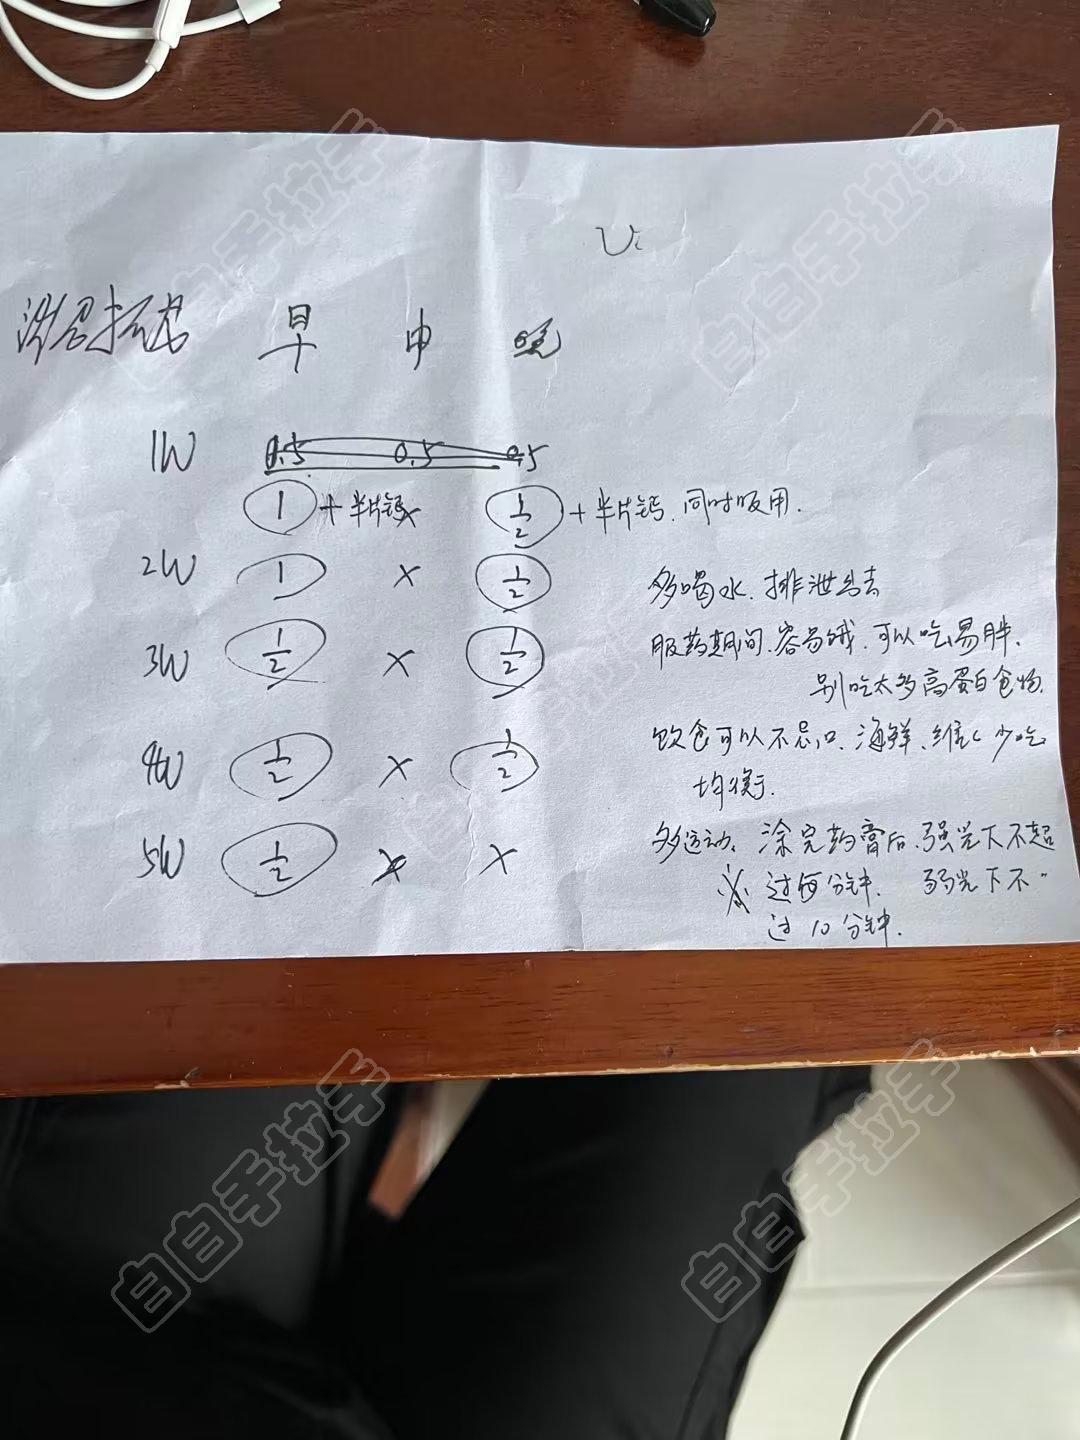 Vi
早 中 晚
1W 0.5 0.5 0.5
1 + 半片钙 × 1/2 + 半片钙、同时服用.
2W 1 × 1/2
多喝水、排泄出去
3W 1/2 × 1/2
服药期间、容易饿、可以吃易胖、
别吃太多高蛋白食物.
4W 1/2 × 1/2
饮食可以不忌口、海鲜、维C少吃
均衡.
5W 1/2 × ×
多运动、涂完药膏后、强光下不超
过 分钟. 弱光下不
过10分钟.
白白手拉手
白白手拉手
白白手拉手
白白手拉手
白白手拉手
白白手拉手